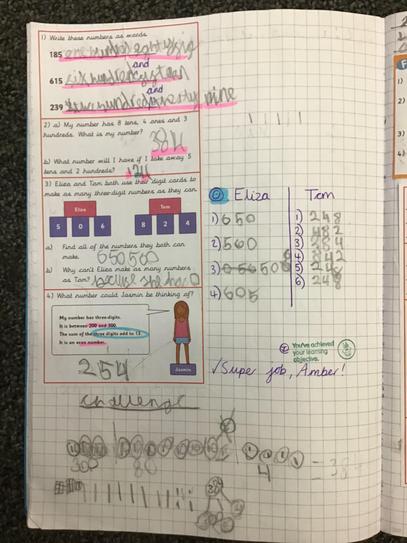 1) Write these numbers as words.
185 one hundred eighty
and
615 six hundred
and
239 two hundred nine
2) a) My number has 8 tens, 4 ones and 3
hundreds. What is my number?
384
b) What number will I have if I take away 5
tens and 2 hundreds?
3) Eliza and Tom both use their digit cards to
make as many three-digit numbers as they can.
Eliza Tom
5 0 6 8 2 4
a) Find all of the numbers they both can
make. 650 500
b) Why can't Eliza make as many numbers
as Tom? because she has 0
4) What number could Jasmin be thinking of?
My number has three digits.
It is between 200 and 300.
The sum of the three digits add to
It is an even number.
254
Jasmin
Eliza Tom
1) 650
2) 560
3) 506
4) 605
1) 248
2) 482
3) 284
4) 842
5)
6) 248
You've achieved
your learning
objective.
✓Super job, Amber!
challenge
300 80 4